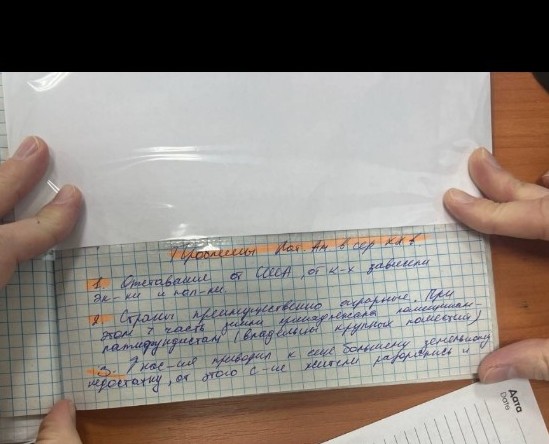 Проблемы Лат. Ам в сер XX в
1. Отставание от США, от к-х зависели
эк-ки и пол-ки
2. Страны преимущественно аграрные. При
этом часть земли принадлежала помещикам-
латифундистам (владельцы крупных поместий)
3. ↑ нас-ия приводил к еще большему земельному
недостатку, от этого с-ие жители разорялись и
Дата
Date